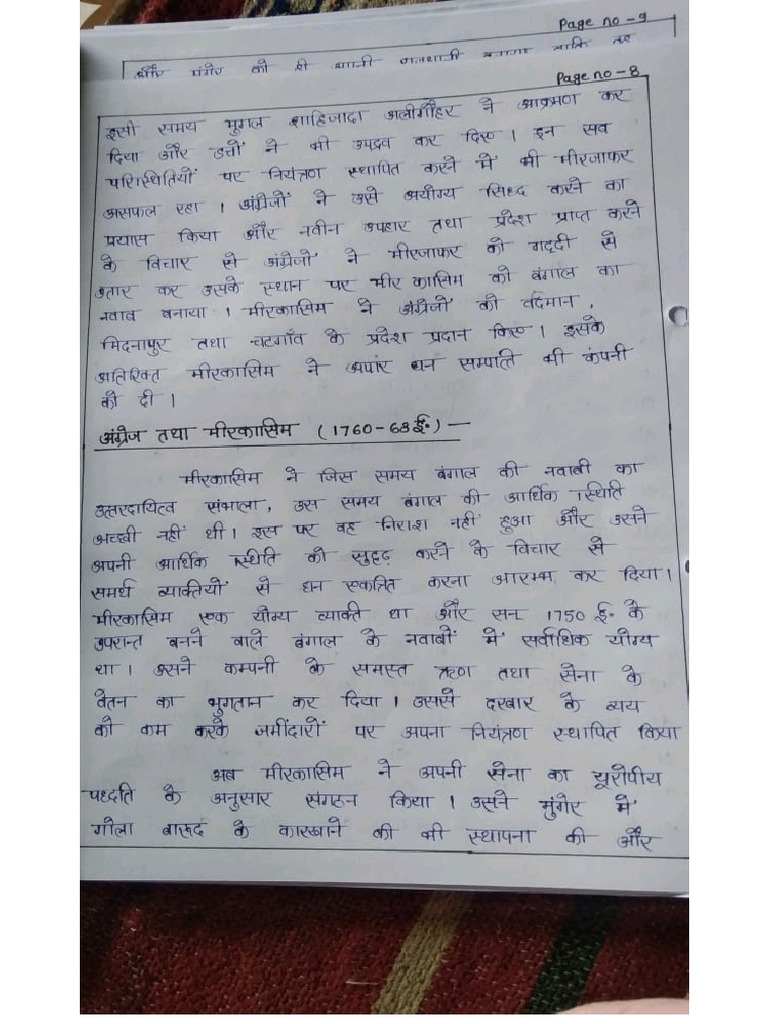 Page no - 9
और मुंगेर को ही अपनी राजधानी बनाया ताकि वह
Page no - 8
इसी समय मुगल शाहजादा अलीगौहर ने आक्रमण कर
दिया और डचों ने भी उपद्रव कर दिए । इन सब
परिस्थितियों पर नियंत्रण स्थापित करने में भी मीरजाफर
असफल रहा । अंग्रेजों ने उसे अयोग्य सिध्द करने का
प्रयास किया और नवीन उपहार तथा प्रदेश प्राप्त करने
के विचार से अंग्रेजों ने मीरजाफर को गद्दी से
उतार कर उसके स्थान पर मीर कासिम को बंगाल का
नवाब बनाया । मीरकासिम ने अंग्रेजों को वर्दमान ,
मिदनापुर तथा चटगाँव के प्रदेश प्रदान किए । इसके
अतिरिक्त मीरकासिम ने अपार धन सम्पति भी कंपनी
को दी ।
अंग्रेज तथा मीरकासिम (1760-63 ई॰) —
मीरकासिम ने जिस समय बंगाल की नवाबी का
उत्तरदायित्व संभाला , उस समय बंगाल की आर्थिक स्थिति
अच्छी नहीं थी । इस पर वह निराश नहीं हुआ और उसने
अपनी आर्थिक स्थिति को सुदृढ़ करने के विचार से
समर्थ व्यक्तियों से धन एकत्रित करना आरम्भ कर दिया ।
मीरकासिम एक योग्य व्यक्ति था और सन 1750 ई॰ के
उपरान्त बनने वाले बंगाल के नवाबों में सर्वाधिक योग्य
था । उसने कम्पनी के समस्त ऋण तथा सेना के
वेतन का भुगतान कर दिया । उससे दरबार के व्यय
को कम करके जमींदारों पर अपना नियंत्रण स्थापित किया
अब मीरकासिम ने अपनी सेना का यूरोपीय
पध्दति के अनुसार संगठन किया । उसने मुंगेर में
गोला बारूद के कारखाने की भी स्थापना की और